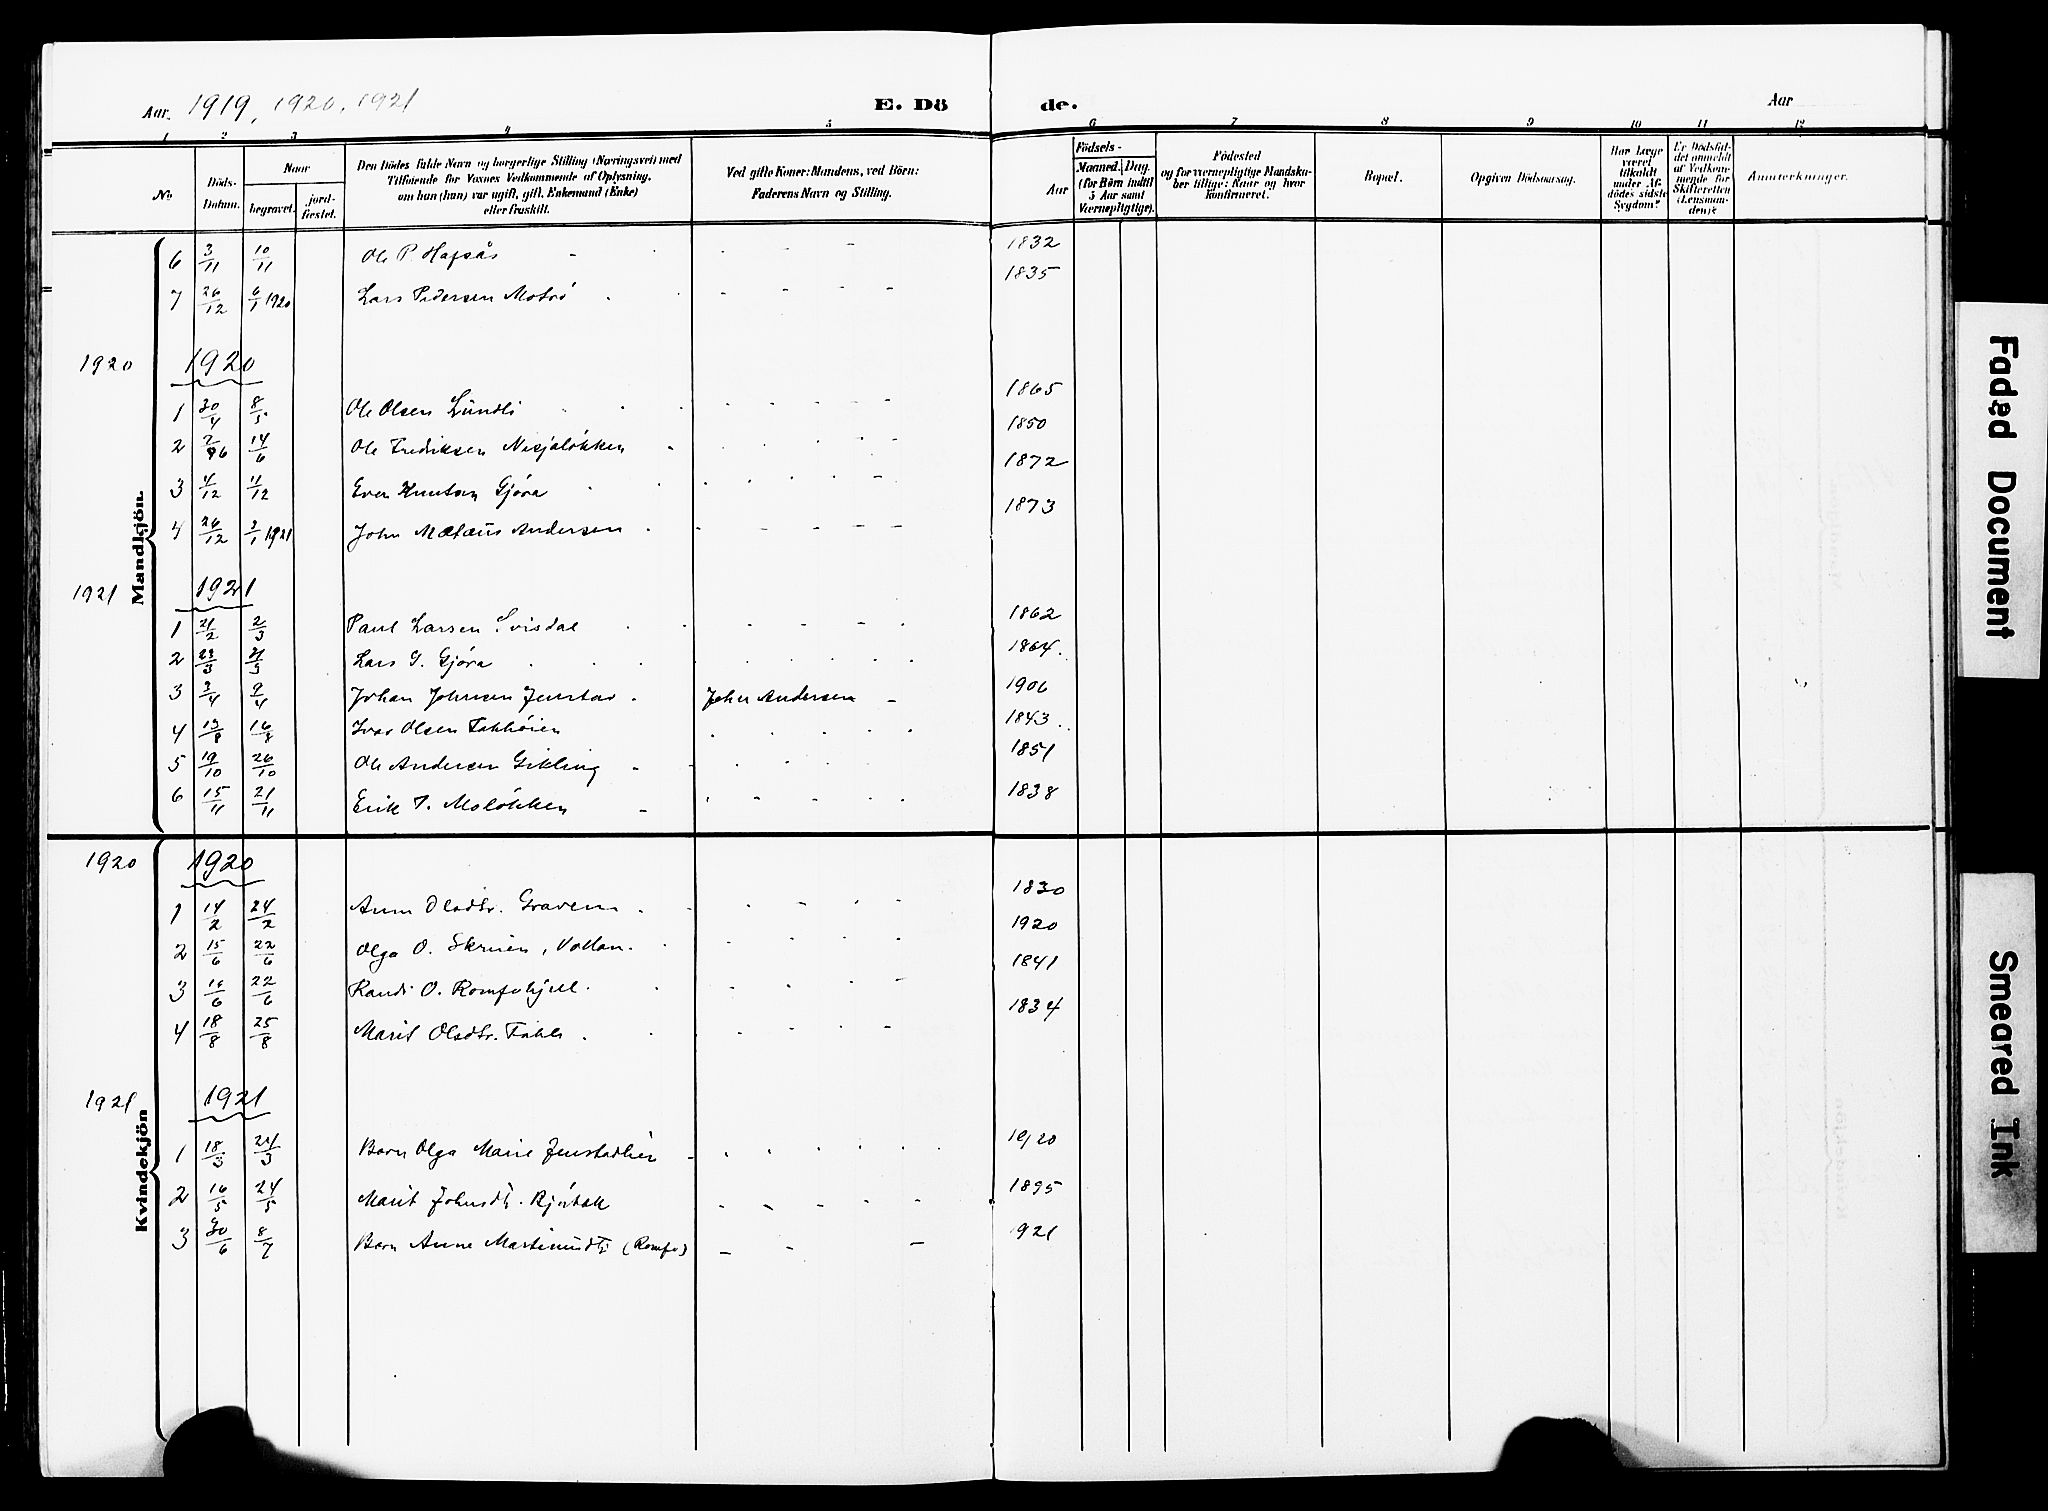 Aar. 1919, 1920, 1921 E. Dö de. Aar
1 2 3 4 5 6 7 8 9 10 11 12
No
Döds-Datum.
Naar
begravet.
jord-fæstet.
Den Dödes fulde Navn og borgerlige Stilling (Næringsvei) med
Tilföiende for Voxnes Vedkommende af Oplysning,
om han (hun) var ugift, gift, Enkemand (Enke)
eller fraskilt.
Ved gifte Koner: Mandens, ved Börn:
Faderens Navn og Stilling.
Födsels-
Aar
Maaned. Dag.
(for Börn indtil
5 Aar samt
Værnepligtige).
Födested
og for værnepligtige Mandska-
ber tillige: Naar og hvor
konfirmeret.
Bopæl.
Opgiven Dödsaarsag.
Har Læge
været
tilkaldt
under Af-
dödes sidste
Sygdom?
Er Dödsfal-
det anmeldt
af Vedkom-
mende for
Skifteretten
(Lensman-
den)?
Anmerkninger.
Mandkjön.
6 3/11 10/11 Ole P. Hafsås 1832
7 26/12 6/1 1920 Lars Pedersen Motrö 1835
1920 1920
1 30/4 8/5 Ole Olsen Lundli 1865
2 2/6 14/6 Ole Fredriksen Nisjaløkken 1850
3 4/12 11/12 Even Knutsen Gjøra 1872
4 26/12 3/1 1921 John Mataus Andersen 1873
1921 1921
1 21/2 2/3 Paul Larsen Svisdal 1862
2 23/3 31/3 Lars G. Gjøra 1864
3 3/4 9/4 Johan Johnsen Jenstad John Andersen 1906
4 13/8 16/8 Ivar Olsen Fahlhöien 1843
5 19/10 26/10 Ole Andersen Gikling 1851
6 15/11 21/11 Erik T. Moløkken 1838
Kvindekjön
1920 1920
1 14/2 24/2 Anne Olsdtr. Gravem 1830
2 15/6 22/6 Olga O. Skruen, Vollan 1920
3 16/6 22/6 Randi O. Romfohjell 1841
4 18/8 25/8 Marit Olsdtr. Fahle 1834
1921 1921
1 18/3 24/3 Barn Olga Marie Jenstadlien 1920
2 16/5 24/5 Marit Johnsdtr. 1895
3 30/6 8/7 Barn Anne (Romfo) 1921
Faded Document
Smeared Ink